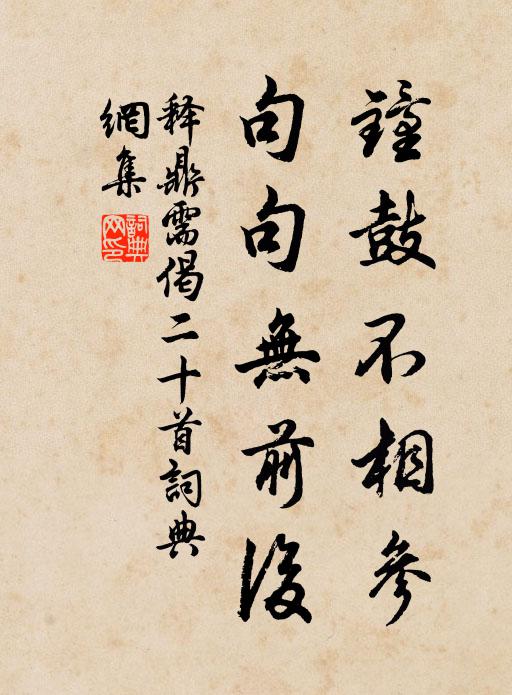 鐘鼓不相參
句句無前後
释鼎需偈二十首詞典
網集
詞典
网印